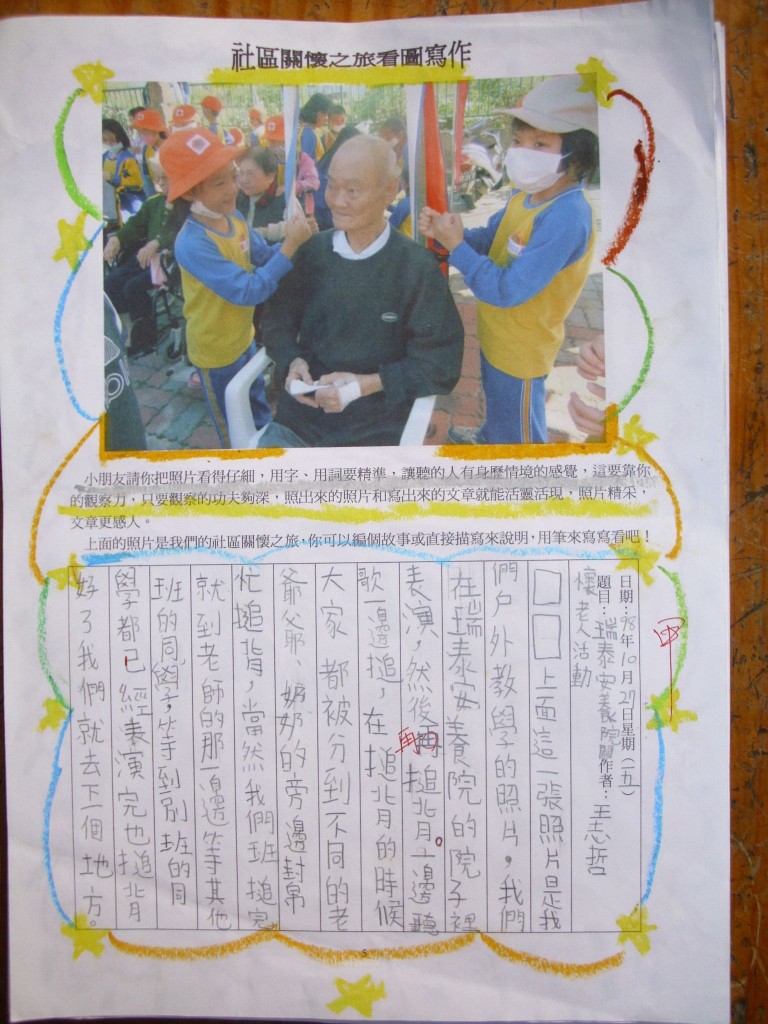 社區關懷之旅看圖寫作
小朋友請你把照片看得仔細，用字、用詞要精準，讓聽的人有身歷情境的感覺，這要靠你
的觀察力，只要觀察的功夫夠深，照出來的照片和寫出來的文章就能活靈活現，照片精采，
文章更感人。
上面的照片是我們的社區關懷之旅，你可以編個故事或直接描寫來說明，用筆來寫寫看吧！
日期：98年10月27日星期（一五）
題目：瑞泰安養院關作者：王志哲
懷老人活動
甲
□□上面這一張照片是我
們戶外教學的照片，我們
在瑞泰安養院的院子裡
表演，然後再搥背。一邊聽
歌一邊搥，在搥背的時候
大家都被分到不同的老
爺爺、奶奶的旁邊封帛
忙搥背，當然我們班搥完
就到老師的那一邊等其他
班的同學，等到別班的同
學都已經表演完也搥背
好了我們就去下一個地方。
5